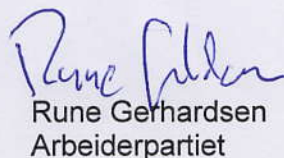 Rune Gerhardsen
Rune Gerhardsen
Arbeiderpartiet